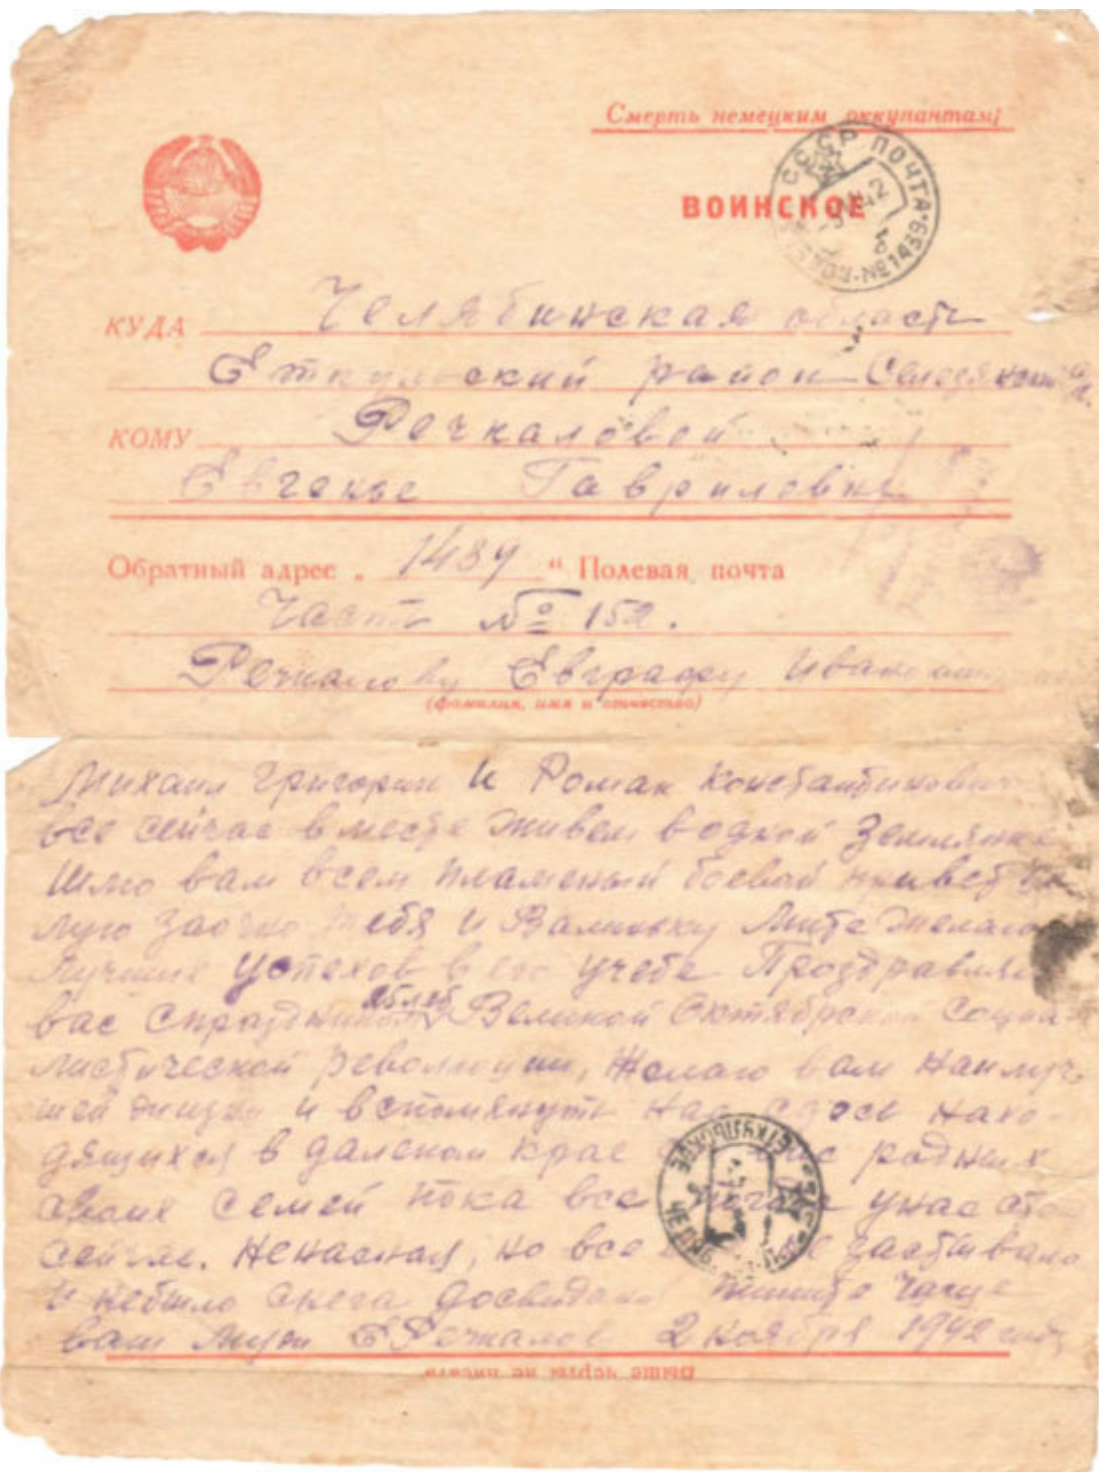 Смерть немецким оккупантам!
ВОИНСКОЕ
СССР ПОЧТА
№1439
КУДА Челябинская область
Еткульский район
КОМУ Речкаловой
Евгенье Гавриловне
Обратный адрес „ 1439 “ Полевая почта
Часть № 152.
Речкалову Евграфу
(фамилия, имя и отчество)
Михаил Григорий и Роман
все сейчас вместе живем водной Землянке
Шлю вам всем пламеный боевой привет
лую заочно тебя и Валиньку Мите желаю
лучших успехов в его учебе Проздравляю
вас спраздником Великой Октябрской Социа
листической революции, Желаю вам наилуч
шей жизни и вспомянуть нас здесь нахо-
дящихся в далеком крае родных
своих семей пока все унас
Ненасная, но все застывало
и небыло снега досвидания пишите чаще
ваш муж Е Речкалов 2 ноября 1942
ЕТКУЛЬСКОЕ ЧЕЛЯБ.
Выше черты не писать